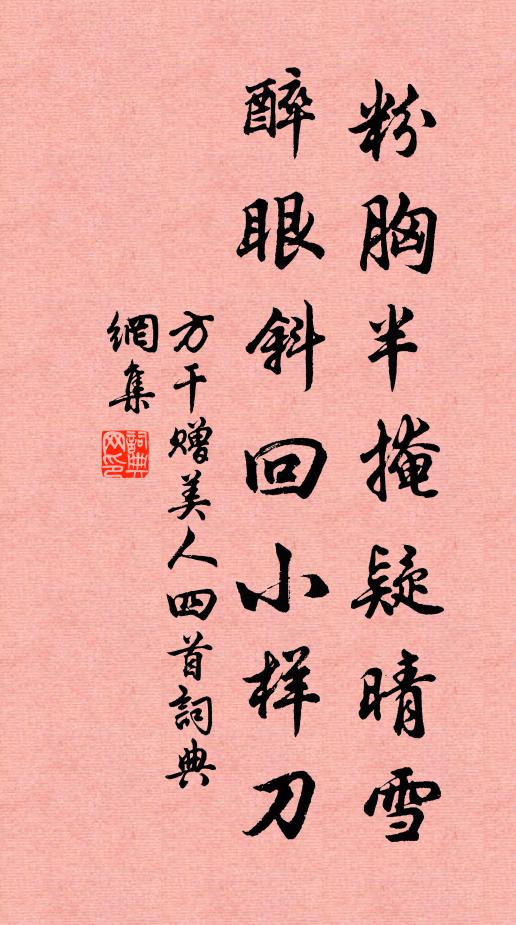 粉胸半掩疑晴雪
醉眼斜回小样刀
方干赠美人四首詞典
網集
詞典
网印